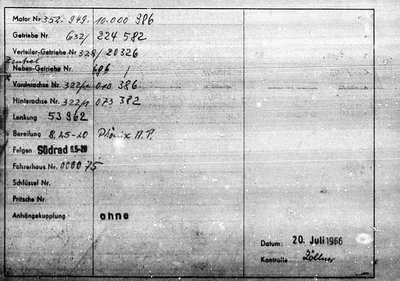 Motor Nr. 352. 949. 10.000 986
Getriebe Nr. 632/ 224 582
Verteiler-Getriebe Nr. 328/20326
Neben-Getriebe Nr.
Vorderachse Nr. 322/ 010 386
Hinterachse Nr. 322/ 073 382
Lenkung 53 962
Bereifung 8.25-20 Phönix M.P.
Felgen Südrad 6.5-20
Fahrerhaus Nr. 0000 75
Schlüssel Nr.
Pritsche Nr
Anhängekupplung ohne
Datum: 20. Juli 1966
Kontrolle Zöllner